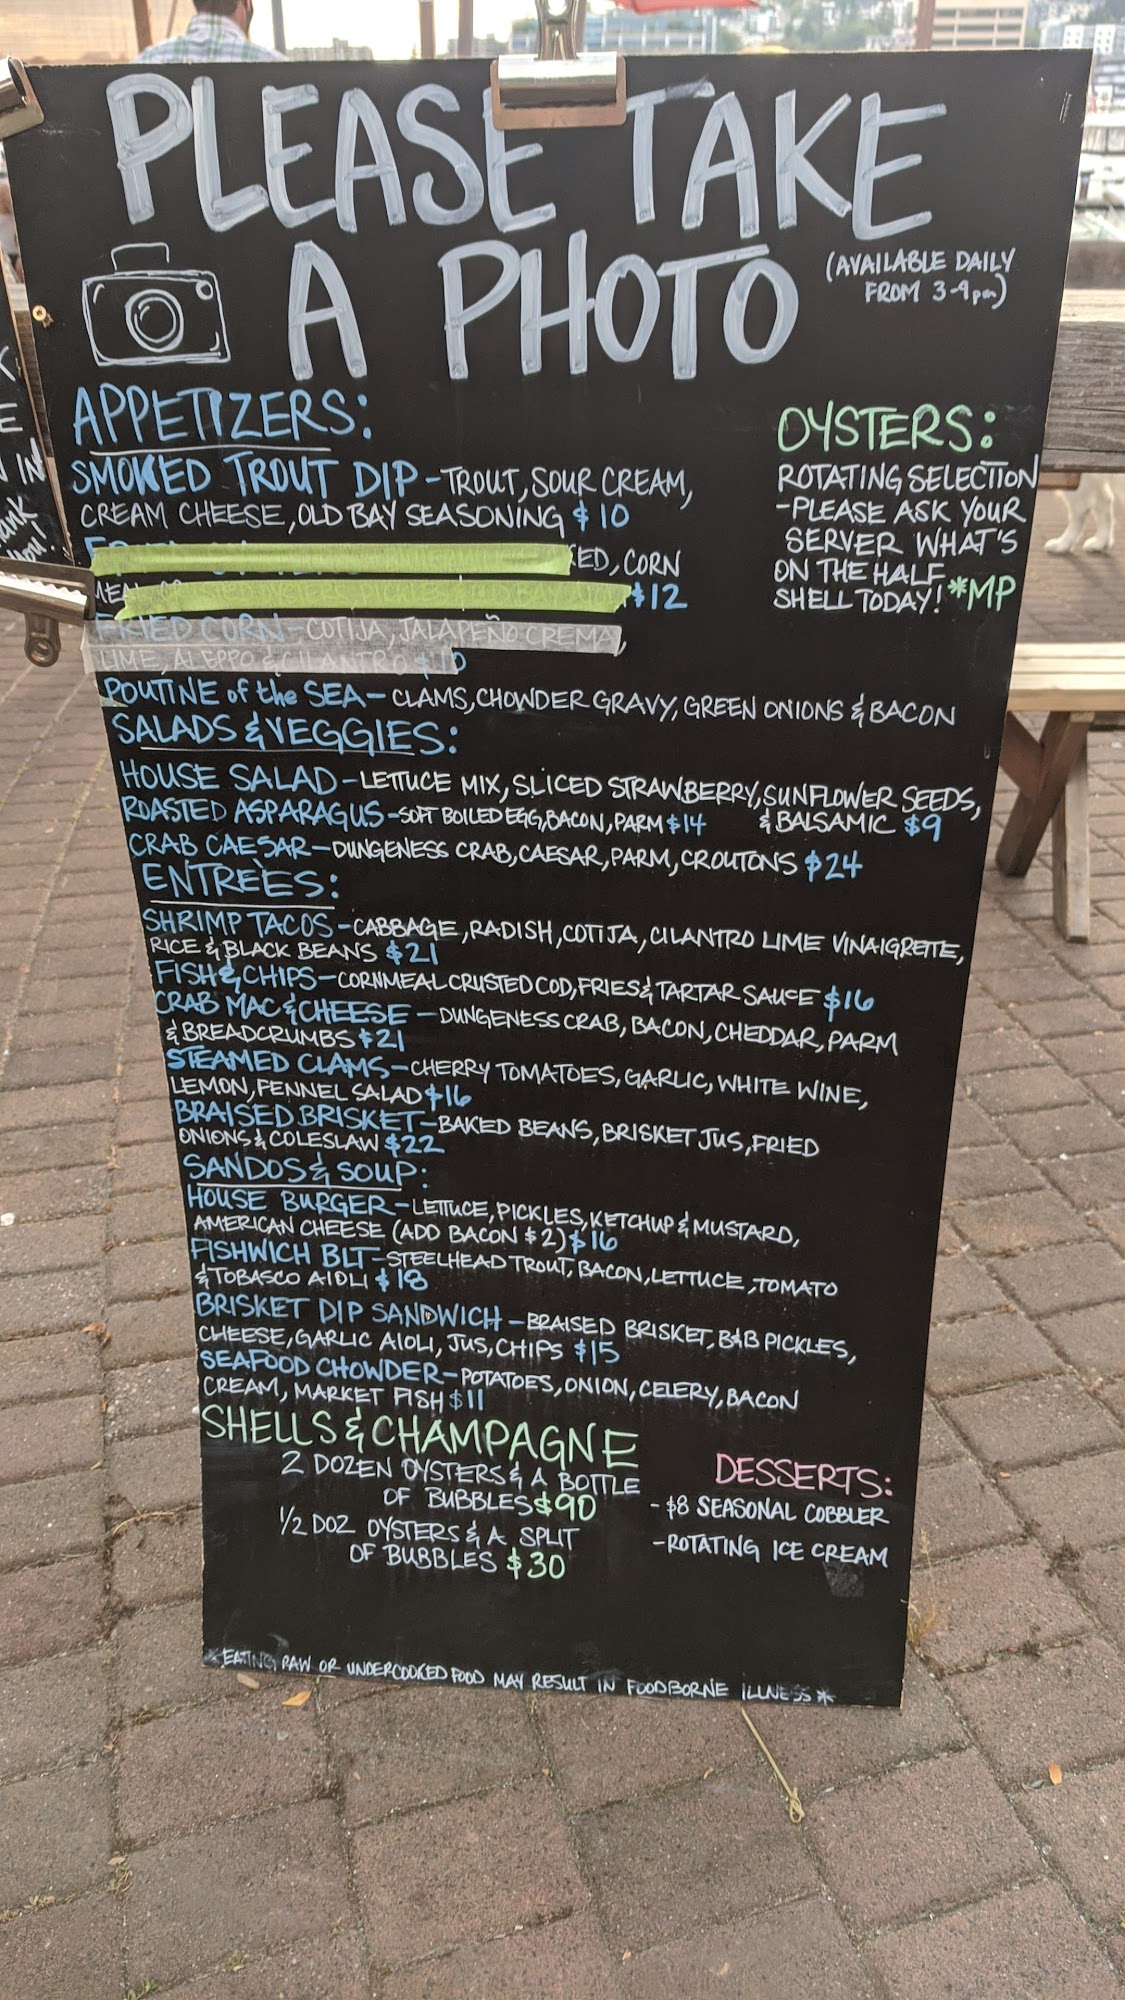 PLEASE TAKE
A PHOTO
(AVAILABLE DAILY
FROM 3-9pm)
APPETIZERS:
SMOKED TROUT DIP - TROUT, SOUR CREAM,
CREAM CHEESE, OLD BAY SEASONING $10
KED, CORN
MEAL
$12
FRIED CORN - COTIJA, JALAPEÑO CREMA,
LIME, ALEPPO & CILANTRO $10
POUTINE of the SEA - CLAMS, CHOWDER GRAVY, GREEN ONIONS & BACON
OYSTERS:
ROTATING SELECTION
- PLEASE ASK YOUR
SERVER WHAT'S
ON THE HALF
SHELL TODAY! *MP
SALADS & VEGGIES:
HOUSE SALAD - LETTUCE MIX, SLICED STRAWBERRY, SUNFLOWER SEEDS,
& BALSAMIC $9
ROASTED ASPARAGUS - SOFT BOILED EGG, BACON, PARM $14
CRAB CAESAR - DUNGENESS CRAB, CAESAR, PARM, CROUTONS $24
ENTRÈES:
SHRIMP TACOS - CABBAGE, RADISH, COTIJA, CILANTRO LIME VINAIGRETTE,
RICE & BLACK BEANS $21
FISH & CHIPS - CORNMEAL CRUSTED COD, FRIES & TARTAR SAUCE $16
CRAB MAC & CHEESE - DUNGENESS CRAB, BACON, CHEDDAR, PARM
& BREADCRUMBS $21
STEAMED CLAMS - CHERRY TOMATOES, GARLIC, WHITE WINE,
LEMON, FENNEL SALAD $16
BRAISED BRISKET - BAKED BEANS, BRISKET JUS, FRIED
ONIONS & COLESLAW $22
SANDOS & SOUP:
HOUSE BURGER - LETTUCE, PICKLES, KETCHUP & MUSTARD,
AMERICAN CHEESE (ADD BACON $2) $16
FISHWICH BLT - STEELHEAD TROUT, BACON, LETTUCE, TOMATO
& TOBASCO AIOLI $18
BRISKET DIP SANDWICH - BRAISED BRISKET, B&B PICKLES,
CHEESE, GARLIC AIOLI, JUS, CHIPS $15
SEAFOOD CHOWDER - POTATOES, ONION, CELERY, BACON
CREAM, MARKET FISH $11
SHELLS & CHAMPAGNE
2 DOZEN OYSTERS & A BOTTLE
OF BUBBLES $90
1/2 DOZ OYSTERS & A SPLIT
OF BUBBLES $30
DESSERTS:
- $8 SEASONAL COBBLER
- ROTATING ICE CREAM
*EATING RAW OR UNDERCOOKED FOOD MAY RESULT IN FOODBORNE ILLNESS*